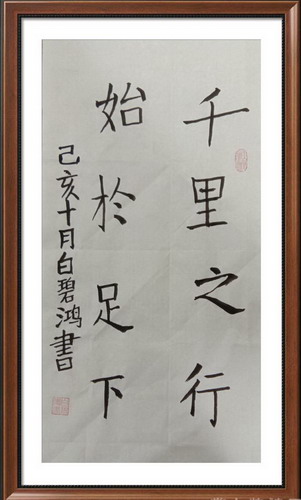 千里之行
始於足下
己亥十月白碧鴻書